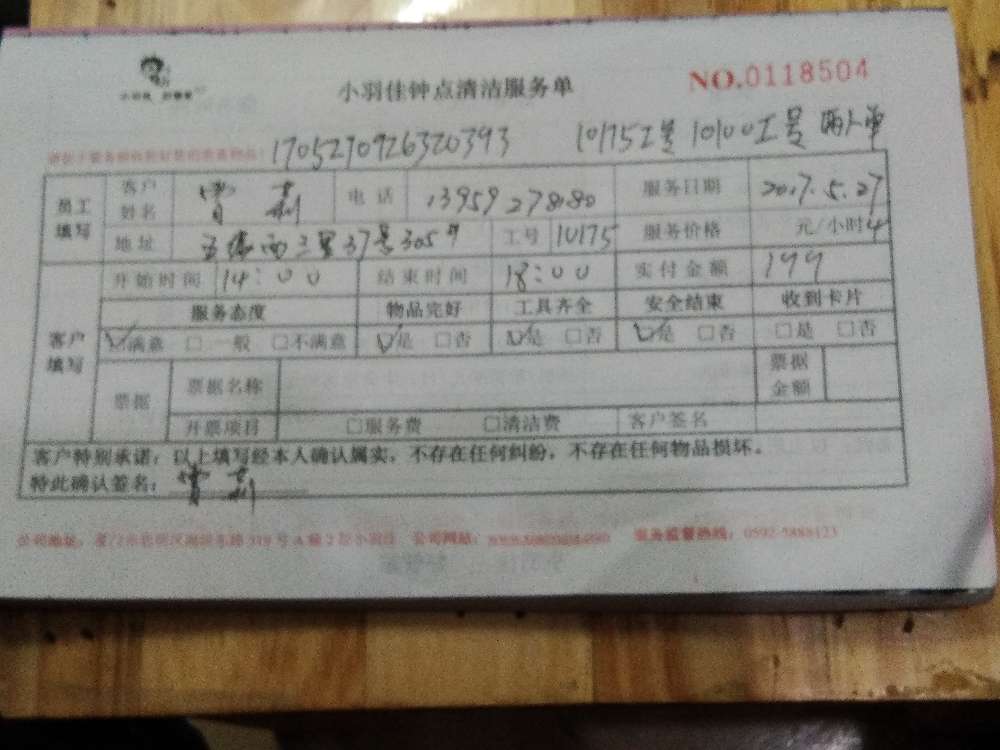 小羽佳钟点清洁服务单 NO.0118504
170527092632039310175工号 10100工号 两人单
员工填写 客户姓名 电话 13959278080 服务日期 2017.5.27
地址 37号305 工号 10175 服务价格 元/小时 4
客户填写 开始时间 14:00 结束时间 18:00 实付金额 199
服务态度 物品完好 工具齐全 安全结束 收到卡片
☑满意 □一般 □不满意 ☑是 □否 ☑是 □否 ☑是 □否 □是 □否
票据 票据名称 票据金额
开票项目 □服务费 □清洁费 客户签名
客户特别承诺：以上填写经本人确认属实，不存在任何纠纷，不存在任何物品损坏。
特此确认签名：
公司地址： 319号A幢2层小羽佳 公司网站： 服务监督热线：0592-5888123